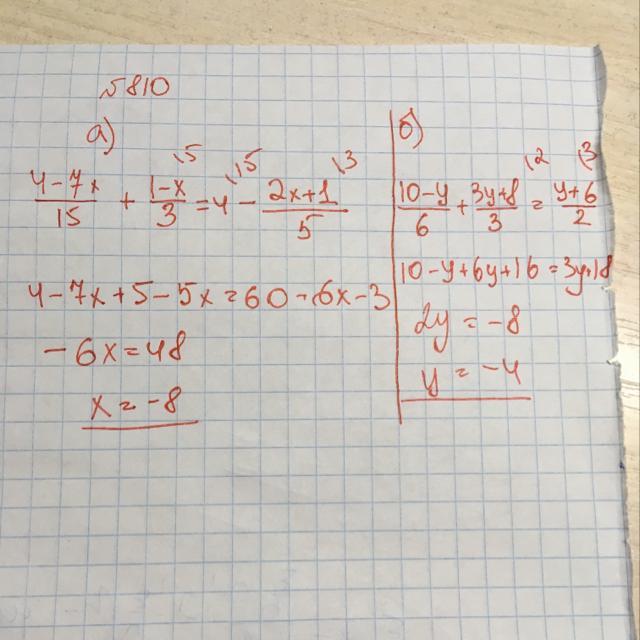 №810
а)
\5 \15 \3
4-7x/15 + 1-x/3 = 4 - 2x+1/5
4-7x+5-5x=60-6x-3
-6x=48
x=-8
б)
\2 \3
10-y/6 + 3y+8/3 = y+6/2
10-y+6y+16=3y+18
2y=-8
y=-4